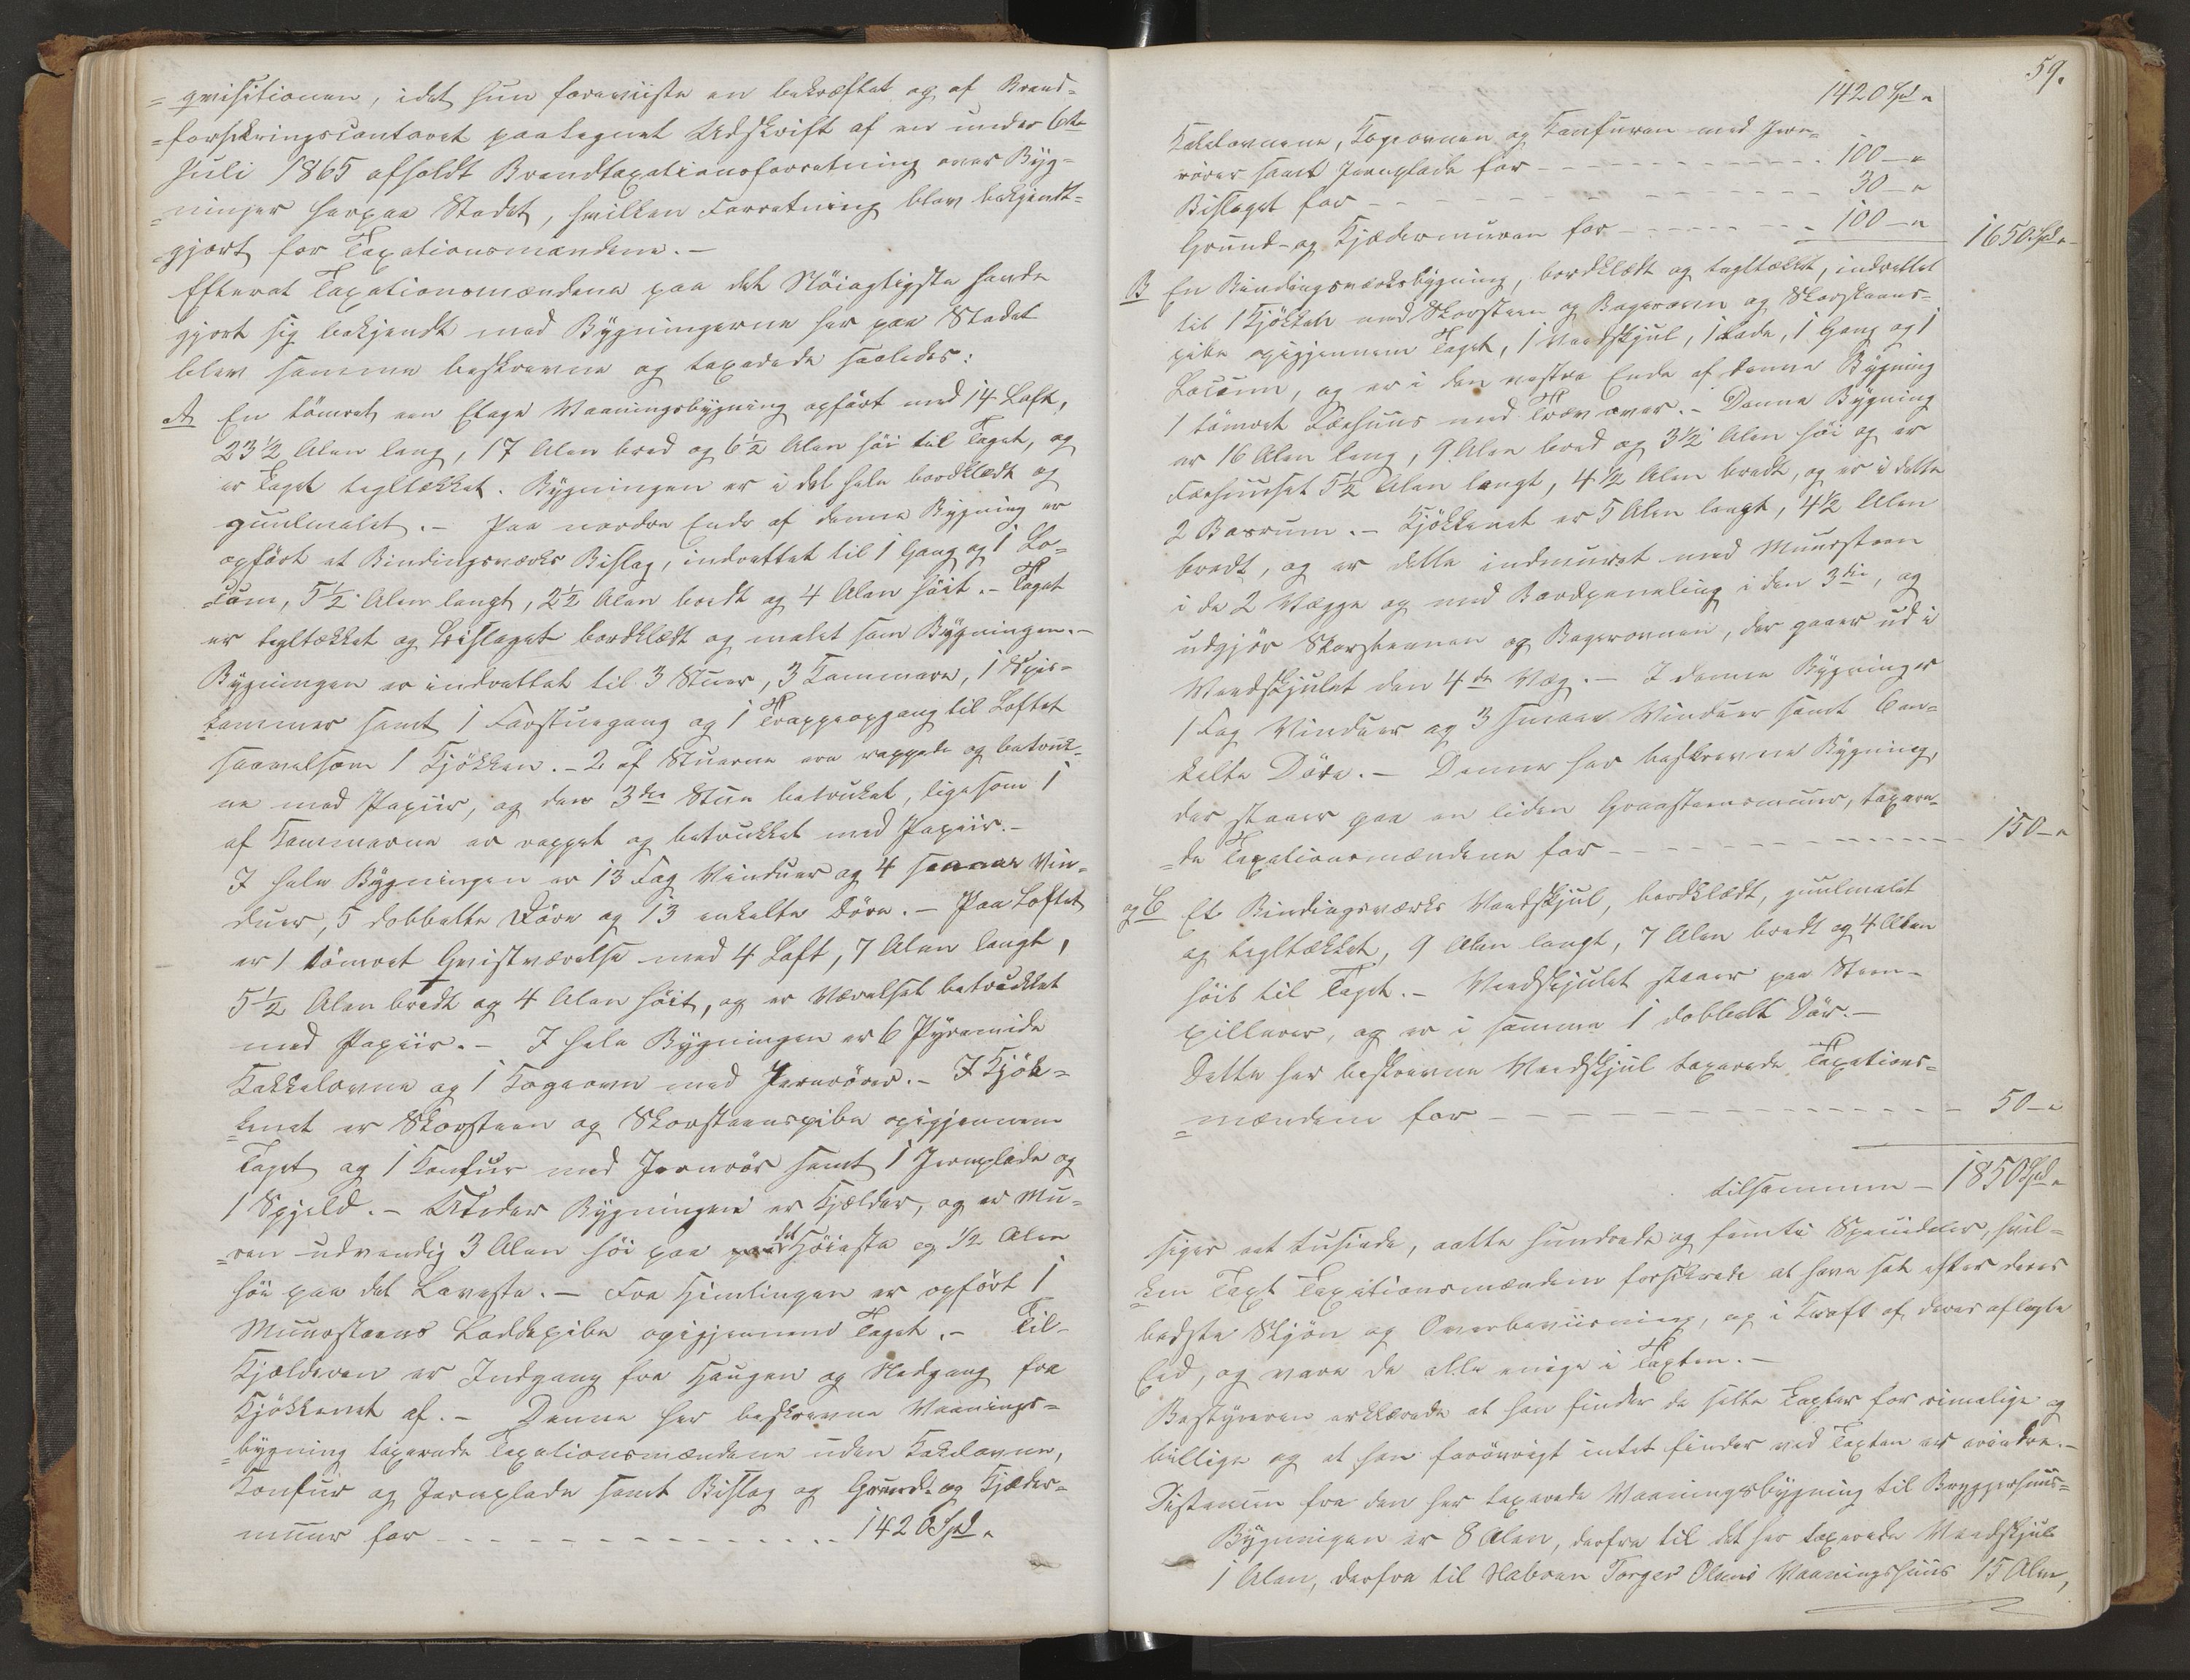 = qvisitionen, idet hun foreviiste en bekræftet og af Brand-
= forsikringscontoret paategnet Udskrift af en under 6te
Juli 1865 afholdt Brandtaxationsforretning over Byg-
= ninger herpaa Stedet, hvilken Forretning blev bekjendt-
= gjort for Taxationsmændene. -
Efterat Taxationsmændene paa det Nöiagtigste havde
gjort sig bekjendt med Bygningerne her paa Stedet
blev samme beskrevne og taxerede saaledes:
A En tömret een Etage Vaaningsbygning opfört med 14 Loft,
23 1/2 Alen lang, 17 Alen bred og 6 1/2 Alen höi til Taget, og
er Taget tegltækket. Bygningen er i det hele bordklædt og
guulmalet. - Paa nordre Ende af denne Bygning er
opfört et Bindingsværks Bislag, indrettet til 1 Gang og 1 Lo-
= cum, 5 1/2 Alen langt, 2 1/2 Alen bredt og 4 Alen höit. - Taget
er tegltækket og Bislaget bordklædt og malet som Bygningen. -
Bygningen er indrettet til 3 Stuer, 3 Kammere, 1 Spis-
= kammer samt 1 Forstuegang og 1 Trappeopgang til Loftet
saavelsom 1 Kjökken. - 2 af Stuerne ere rappede og betruk-
ne med Papiir, og den 3die Stue betrukket, ligesom 1
af Kammerne er rappet og betrukket med Papiir. -
I hele Bygningen er 13 Fag Vinduer og 4 smaae Vin-
duer, 5 dobbelte Döre og 13 enkelte Döre. - Paa Loftet
er 1 tömret Qvistværelse med 4 Loft, 7 Alen langt,
5 1/2 Alen bredt og 4 Alen höit, og er Værelset betrukket
med Papiir. - I hele Bygningen er 6 Pyramide
Kakkelovne og 1 Kogeovn med Jernrörer. - I Kjök-
= kenet er Skorsteen og Skorsteenspibe opigjennem
Taget og 1 Komfur med Jernrör samt 1 Jernplade og
1 Spjeld. - Under Bygningen er Kjælder, og er Mu-
= ren udvendig 3 Alen höi paa det Höieste og 1/2 Alen
höi paa det Laveste. - Fra Himlingen er opfört 1
Muursteens Laddepibe opigjennem Taget. - Til
Kjælderen er Indgang fra Haugen og Nedgang fra
Kjökkenet af. - Denne her beskrevne Vaanings-
= bygning taxerede Taxationsmændene uden Kakelovne,
Komfur og Jernplade samt Bislag og Grund- og Kjælder-
muur for - - - 1420 Spd "
59.
1420 Spd "
Kakelovnene, Kogeovnen og Komfuren med Jern-
rörer samt Jernplade for - - - 100 - "
Bislaget for - - - 30 - "
Grund- og Kjældermuren for - - - 100 - " 1650 Spd "
B En Bindingsværksbygning, bordklædt og tegltækket, indrettet
til 1 Kjökken med Skorsteen og Bagerovn og Skorsteens-
pibe opigjennem Taget, 1 Vedskjul, 1 Lade, 1 Gang og 1
Locum, og er i den vestre Ende af denne Bygning
1 tömret Fæehuus med Trev over. - Denne Bygning
er 16 Alen lang, 9 Alen bred og 3 1/2 Alen höi og er
Fæehuuset 5 1/2 Alen langt, 4 1/2 Alen bredt, og er i dette
2 Baasrum. - Kjökkenet er 5 Alen langt, 4 1/2 Alen
bredt, og er dette indmuret med Muursteen
i de 2 Vægge og med Bordpaneling i den 3die, og
udgjör Skorstenen og Bagerovnen, der gaaer ud i
Veedskjulet den 4de Væg. - I denne Bygning er
1 Fag Vinduer og 3 smaae Vinduer samt 6 en-
kelte Döre. - Denne her beskrevne Bygning,
der staaer paa en liden Graasteensmuur, taxere-
= de Taxationsmændene for - - - 150 - "
og C Et Bindingsværks Veedskjul, bordklædt, guulmalet
og tegltækket, 9 Alen langt, 7 Alen bredt og 4 Alen
höit til Taget. - Veedskjulet staaer paa Steen-
pillarer, og er i samme 1 dobbelt Dör. -
Dette her beskrevne Veedskjul taxerede Taxations-
= mændene for - - - 50 - "
tilsammen - 1850 Spd "
siger eet tusinde, aatte hundrede og femti Speciedaler, hvil-
= ken Taxt Taxationsmændene forsikrede at have sat efter deres
bedste Skjön og Overbeviisning, og i Kraft af deres aflagte
Eed, og vare de alle enige i Taxten. -
Bestyreren erklærede at han finder de satte Taxter for rimelige og
billige og at han forövrigt intet finder ved Taxten at erindre. -
Distancen fra den her taxerede Vaaningsbygning til Bryggerhuus-
Bygningen er 8 Alen, derfra til det her taxerede Veedskjul
1 Alen, derfra til Naboen Torger Olsens Vaaningshuus 15 Alen,